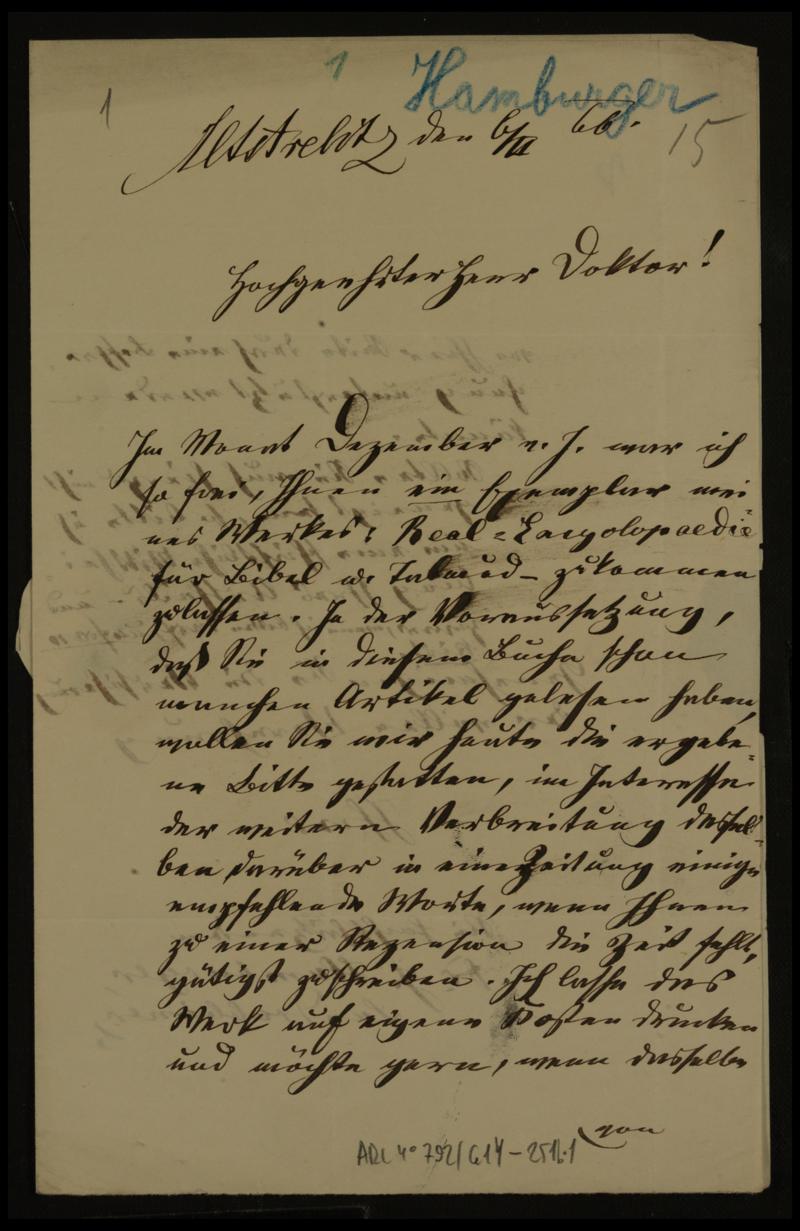 1
1
Hamburger
15
Altstrelitz den 6/II 66.
Hochgeehrter Herr Doktor!
Im Monat Dezember v. J. war ich
so frei, Ihnen ein Exemplar mei
nes Werkes: Real=Encyclopaedie
für Bibel u. Talmud – zukommen
zulassen. In der Voraussetzung,
daß Sie in diesem Buche schon
manchen Artikel gelesen haben,
wollen Sie mir heute die ergebe=
ne Bitte gestatten, im Interesse
der weitern Verbreitung dessel=
ben darüber in eine Zeitung einige
empfehlende Worte, wenn Ihnen
zu einer Rezension die Zeit fehlt,
gütigst zuschreiben. Ich lasse das
Werk auf eigene Kosten drucken
und möchte gern, wenn dasselbe
von
ARC 4° 792/G14-251b.1